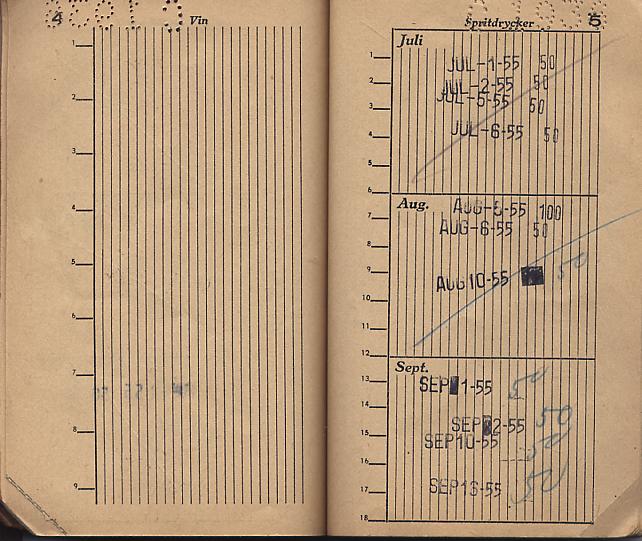 4 Vin
1
2
3
4
5
6
7
8
9
Spritdrycker 5
Juli
1 JUL-1-55 50
2 JUL-2-55 50
3 JUL-5-55 50
4 JUL-6-55 50
5
6
Aug. AUG-5-55 100
7 AUG-6-55 50
8
9 AUG10-55 50
10
11
12
Sept.
13 SEP 1-55 50
14
SEP 2-55 50
15 SEP10-55 50
16
17 SEP16-55 50
18